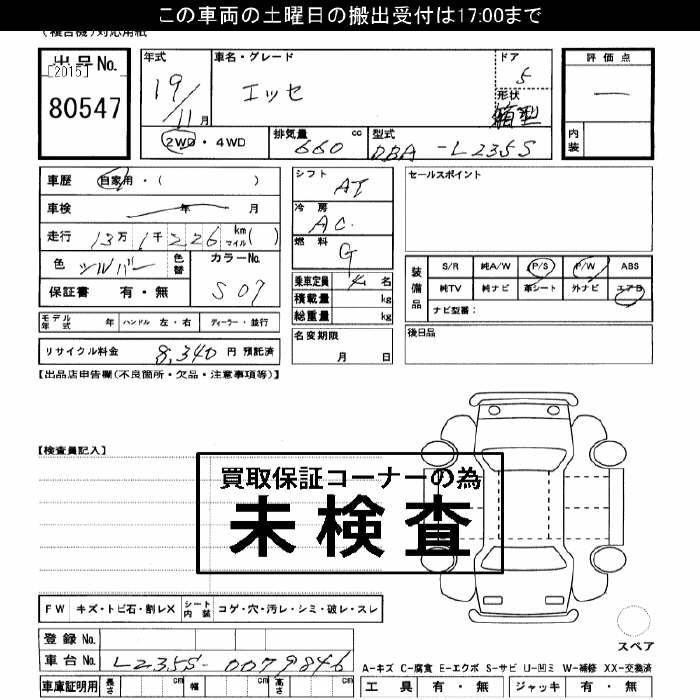 この車両の土曜日の搬出受付は17:00まで
(複合機)対応用紙
出品No. [2015] 80547
年式 19/11月
車名・グレード エッセ
ドア 5
形状 箱型
評価点 ー
内装
2WD・4WD
排気量 660 cc
型式 DBA-L235S
車歴 自家用・( )
車検 年 月
走行 13万1千226 km マイル( )
色 シルバー 色替
カラーNo. S07
保証書 有・無
シフト AT
冷房 AC.
燃料 G
乗車定員 4名
積載量 kg
総重量 kg
名変期限 月 日
セールスポイント
装備品 S/R 純A/W P/S P/W ABS
純TV 純ナビ 革シート 外ナビ エアB
ナビ型番:
後日品
モデル年式 年 ハンドル 左・右 ディーラー・並行
リサイクル料金 8,340 円 預託済
【出品店申告欄(不良箇所・欠品・注意事項等)】
【検査員記入】
買取保証コーナーの為
未検査
FW キズ・トビ石・割レX シート内装 コゲ・穴・汚レ・シミ・破レ・スレ
スペア
登録No.
車台No. L235S-0079846
A-キズ C-腐食 E-エクボ S-サビ U-凹ミ W-補修 XX-交換済
車庫証明用 長さ cm 幅 cm 高さ cm
工具 有・無 ジャッキ 有・無